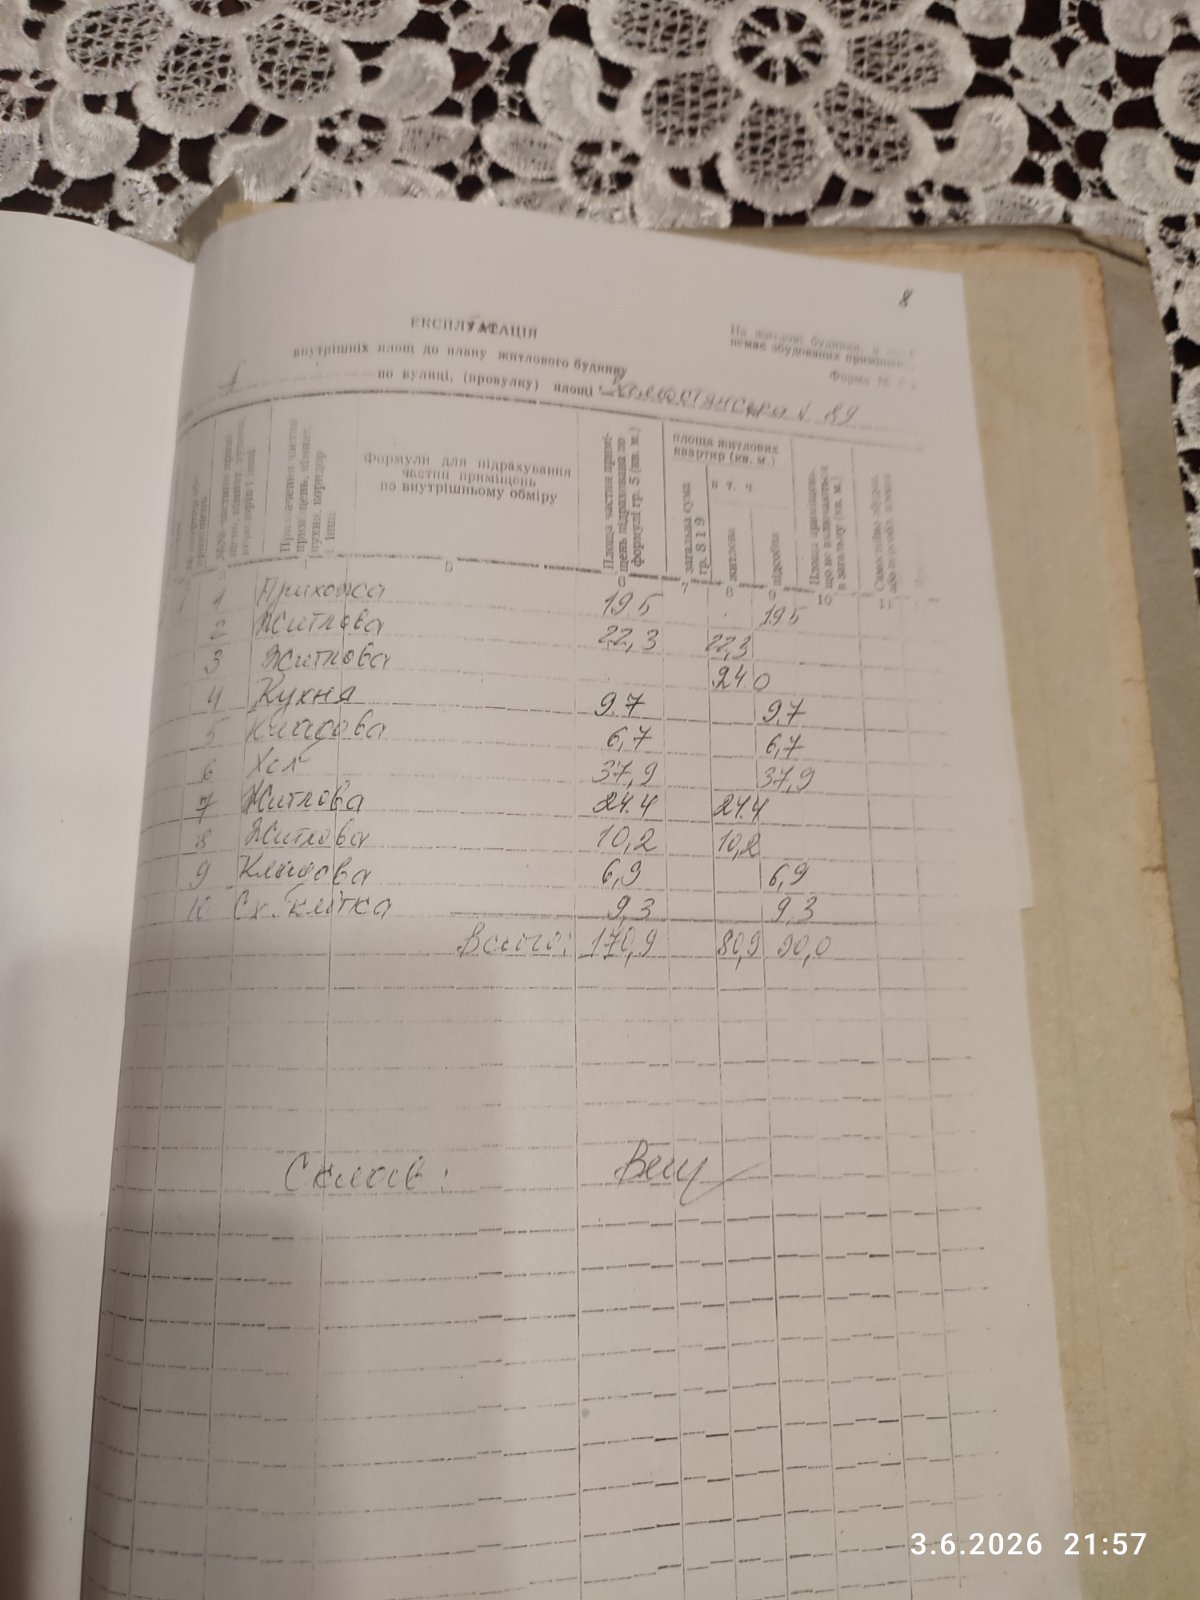 8
ЕКСПЛУАТАЦІЯ
На житлові будинки, в
немає збудованих приміщень
внутрішніх площ до плану житлового будинку
Форма №
по вулиці, (провулку) площі № 89
Призначення частин приміщень, кімнат, кухня, коридор і інші
формули для підрахування
частин приміщень
по внутрішньому обміру
Площа частин приміщень підрахована по формулі гр. 5 (кв. м.)
площа житлових
квартир (кв. м.)
загальна сума гр. 8 і 9
в т. ч.
житлова
підсобна
Площа приміщень, що не включаються в загальну (кв. м.)
5 6 7 8 9 10 11
1 Прихожа 19.5 19.5
2 Житлова 22,3 22,3
3 Житлова 24 0
4 Кухня 9.7 9,7
5 Кладова 6,7 6,7
6 Хол 37,9 37,9
7 Житлова 24.4 24.4
8 Житлова 10,2 10,2
9 Кладова 6,9 6,9
10 Сх. клітка 9,3 9,3
Всього: 170,9 80,9 90,0
Склав:
3.6.2026 21:57